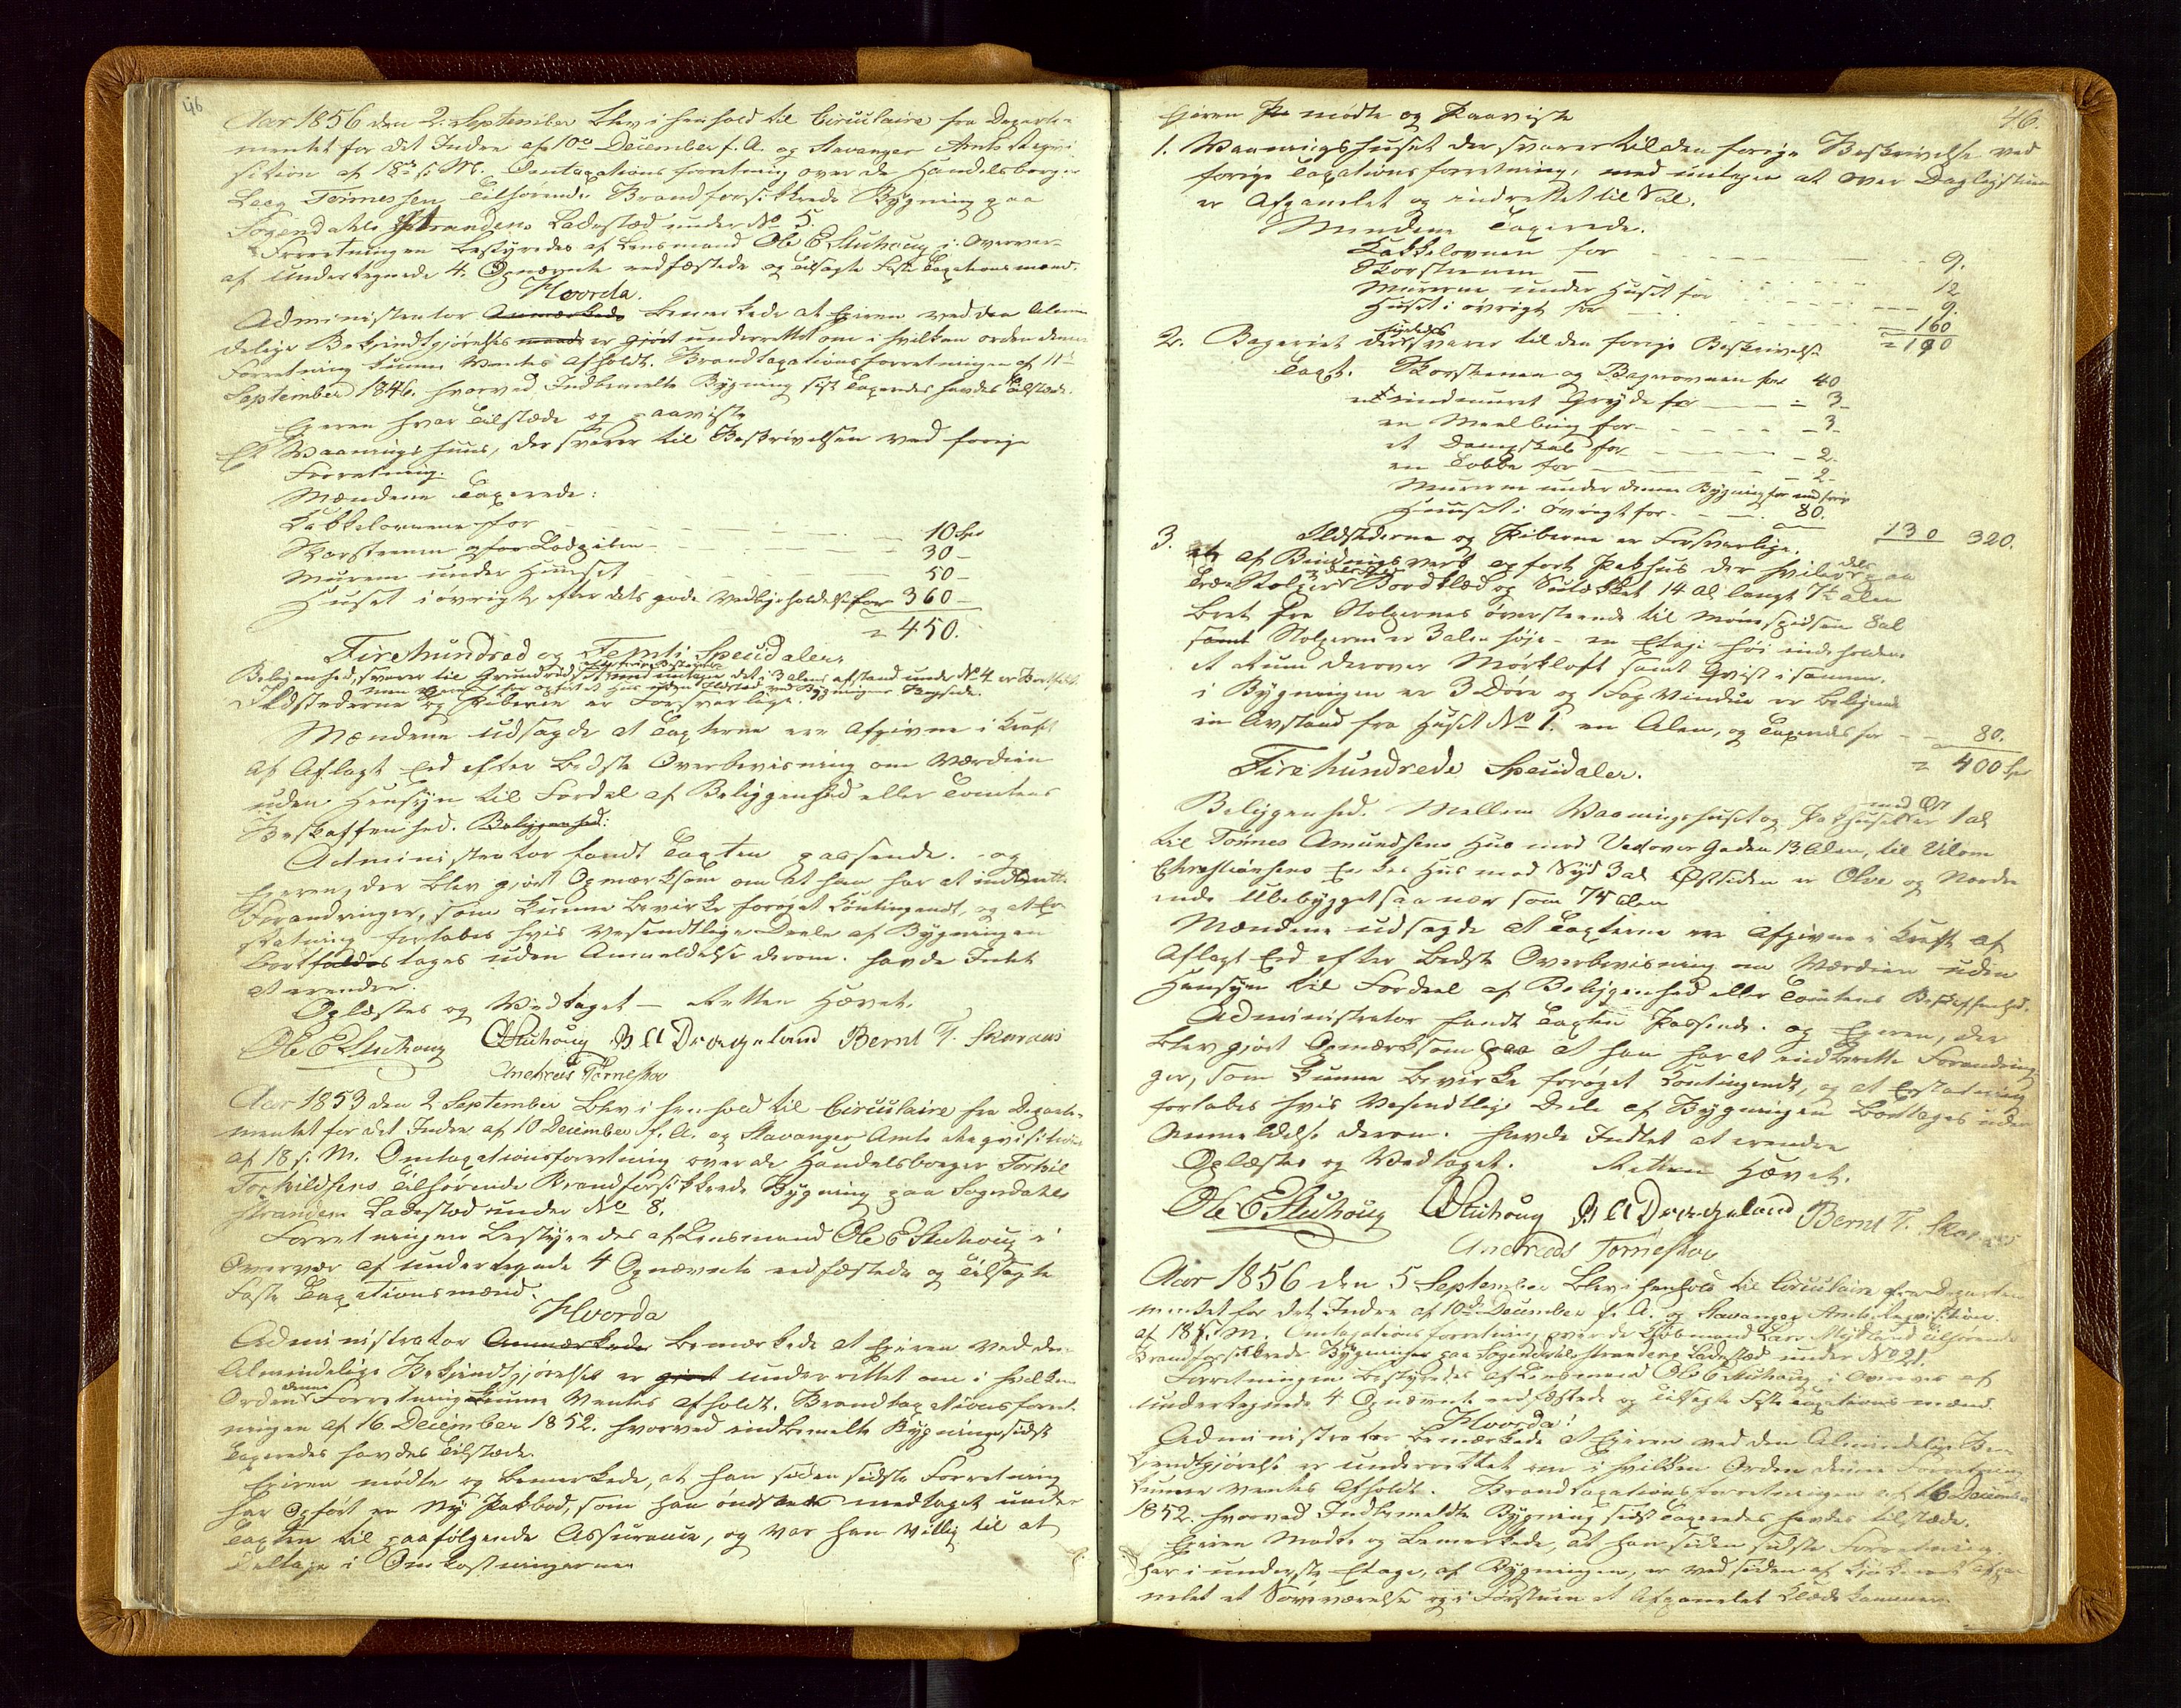 46
Aar 1856 den 2. September blev i henhold til Circulaire fra Departe-
mentet for det Indre af 10de December f. A. og Stavanger Amts Reqvi-
sition af 18de s. M. Omtaxationsforretning over de Handelsborger
Tønnessen Tilhørende Brandforsikkrede Bygning paa
Sogendahls Strandens Ladested under No 5.
Forretningen bestyredes af Lensmand Ole E Stuhoug i Overvær
af undertegnede 4 Opnævnte edfæstede og tilsagte faste Taxationsmænd.
Hvorda.
Administrator Anmærkede bemerkede at Eieren ved den Almin-
delige Bekjendtgjørelse er gjort underrettet om i hvilken orden denne
Forretning kunne Ventes afholdt. Brandtaxationsforretningen af 11te
September 1846. hvorved Indbemelte Bygning sist Taxeredes havdes tilstæde.
Eieren hvar tilstæde og paaviste
Et Vaanings huus, der svarer til Beskrivelsen ved forrige
Forretning.
Mændene Taxerede:
Kakkelovnene for 10 Spd
Skorstenen for 30 -
Murene under Huuset 50 -
Huset i øvrigt efter dets gode Vedligeholdelse for 360 -
= 450.
Firehundred og Femti Specidaler.
Beligenhed, svarer til Grundrids med undtagen det i 3 alens afstand under No 4 er Bortfaldt
Ildstederne og Piberne er Forsvarlige.
Mændene udsagde at Taxterne ere Afgivne i Kraft
af Aflagt Eed efter bedste Overbevisning om Værdien
uden Hensyn til Fordel af Beliggenhed eller Tomtens
Beskaffenhed. Beliggenhed:
Administrator fandt Taxten passende. og
Eieren, der blev gjort Opmærksom om at han har at indberette
Forandringer, som kunne bevirke forøget Contingendt, og at Er-
statning fortabes hvis Væsendtlige Deele af Bygningen
bortfaldes tages uden Anmeldelse derom. havde Intet
at erendre.
Oplæstes og Vedtaget - Retten Hævet.
Ole E Stuhoug Stuhoug Drageland Bernt T. Skaraas
Andreas Tørneskov
Aar 1853 den 2 September blev i henhold til Circulaire fra Departe-
mentet for det Indre af 10 December f. A. og Stavanger Amts Reqvisition
af 18 s. M. Omtaxationsforretning over de Handelsborger Torkil
Torkildsens Tilhørende Brandforsikkrede Bygning paa Sogndahls
Stranden Ladested under No 8.
Forretningen bestyredes af Lensmand Ole E Stuhoug i
Overvær af undertegnede 4 Opnævnte edfæstede og Tilsagte
faste Taxationsmænd.
Hvorda
Administrator Anmærkede bemærkede at Eieren ved den
Almindelige Bekjendtgjørelse er gjort underrettet om i hvilken
Orden denne Forretning kunne Ventes afholdt. Brandtaxationsforret-
ningen af 16 December 1852. hvorved indbemelte Bygning sidst
Taxeredes havdes Tilstæde.
Eieren mødte og bemerkede, at han siden sidste Forretning
har Opført en Ny Pakbod, som han ønskede medtaget under
Taxten til paafølgende Assurance, og var han villig til at
deltage i Omkostningerne
46.
Eieren mødte og Paaviste
1. Vaaningshuset der svarer til den forige Beskrivelse ved
forige Taxationsforretning, med undtagen at over Dagligstuen
er Afpanelet og indrettet til Sal.
Mændene Taxerede.
Kakkelovnen for 9.
Skorstenen - 12
Murerne under Huset for 9.
Huset i øvrigt for 160
= 190
2. Bageriet der svarer til den forige Beskrivelse
Taxt. Skorstenen og Bagerovnen for 40
en indmuret Gryde for 3 -
en Meelbing for 3 -
et Dampskab for 2 -
en Tobbe for 2 -
Murerne under denne Bygning for
Huuset i øvrigt for 80.
Ildstederne og Piberne er Forsvarlige. 130 320.
3. af Bindingsverk opført Pakhus der hviler paa
Træ Stolper Bordklæd og Tulækket 14 al langt 7½ alen
bret fra Stolpernes øversteende til Mønespidsen 8 al
samt Stolperne er 3 alen høje - en Etage høi indeholdende
et Rum derover Mørkloft samt Qvist i samme.
i Bygningen er 3 Døre og 1 Fag Vindue er beligende
in Avstand fra Huset No 1. en Alen, og Taxeredes for 80.
Firehundrede Specidaler. = 400 Spd
Beliggenhed. Mellem Vaaningshuset og Pakhuset med Øst er 1 al
til Tønnes Amundsens Hus mod Vest over Gaden 13 Alen, til Vilom
Christiansens Enkes Hus mod Syd 3 al Østsiden er Elve og Nordre
ende Ubebygget saa nær som 75 Alen
Mændene udsagde at Taxterne ere Afgivne i Kraft af
Aflagt Eed efter bedste Overbevisning om Værdien uden
Hensyn til Fordeel af Beliggenhed eller Tomtens Beskaffenhed.
Administrator fandt Taxten Passende. og Eieren, der
blev gjort Opmærksom paa at han har at indberette Forandrin-
ger, som kunne bevirke forøget Contingendt, og at Erstatning
fortabes hvis Væsendtlige Dele af Bygningen borttages uden
Anmeldelse derom. havde Indtet at erendre
Oplæstes og Vedtaget. Retten Hævet.
Ole E Stuhoug Stuhoug Drageland Bernt T. Skaraas
Andreas Tørneskov
Aar 1856 den 5 September blev i henhold til Circulaire fra Departe-
mentet for det Indre af 10de December f. A. og Stavanger Amts Reqvisition
af 18 s. M. Omtaxationsforretning over de Kjøbmand Lars Mydland tilhørende
Brandforsikkrede Bygninger paa Sogndahls Strandens Ladested under No 21.
Forretningen bestyredes af Lensmand Ole E Stuhoug i Overvær af
undertegnede 4 Opnævnte edfæstede og tilsagte faste Taxationsmænd
Hvorda!
Administrator bemærkede at Eieren ved den Almindelige Be-
kjendtgjørelse er underrettet om i hvilken Orden denne Forretning
kunne Ventes Afholdt. Brandtaxationsforretningen af 16 December
1852. hvorved Indbemeldte Bygning sidst Taxeredes havdes tilstæde.
Eieren Mødte og bemerkede, at han siden sidste Forretning.
har i underste Etage, af Bygningen, er ved siden af Kjøkenet afpa-
nelet et Soveværelse og i Forstuen et Afpanelet Klædekammer